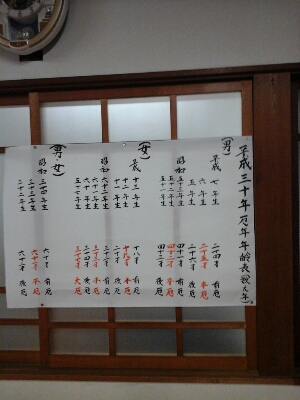 平成三十年厄年年齢表(数え年)
(男)
平成 七年生 二十四才 前厄
六年生 二十五才 本厄
五年生 二十六才 後厄
昭和 五十三年生 四十一才 前厄
五十二年生 四十二才 大厄
五十一年生 四十三才 後厄
(女)
平成 十三年生 十八才 前厄
十二年生 十九才 本厄
十一年生 二十才 後厄
昭和 六十二年生 三十二才 前厄
六十一年生 三十三才 本厄
六十年生 三十四才 後厄
五十七年生 三十七才 大厄
(男女)
昭和 三十四年生 六十才 前厄
三十三年生 六十一才 本厄
三十二年生 六十二才 後厄